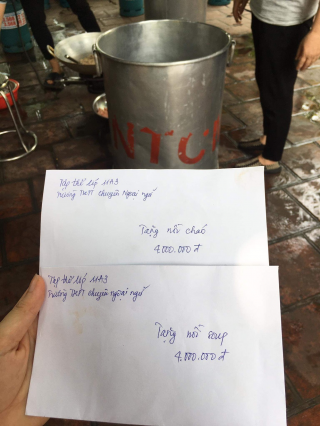 NTCT
Tập thể lớp 11A3
Trường THPT chuyên Ngoại ngữ
Tặng nồi cháo
4.000.000 đ
Tập thể lớp 11A3
Trường THPT chuyên ngoại ngữ
Tặng nồi soup
4.000.000 đ